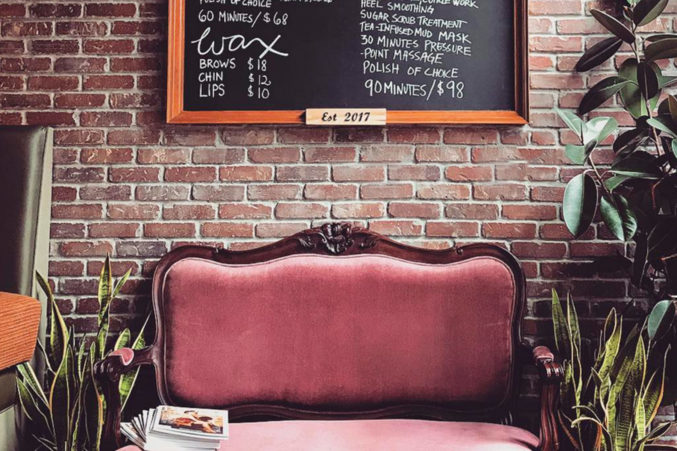 POLISH OF CHOICE
60 MINUTES/$68
wax
BROWS $18
CHIN $12
LIPS $10
HEEL SMOOTHING
SUGAR SCRUB TREATMENT
TEA-INFUSED MUD MASK
30 MINUTES PRESSURE
-POINT MASSAGE
POLISH OF CHOICE
90 MINUTES/$98
Est 2017